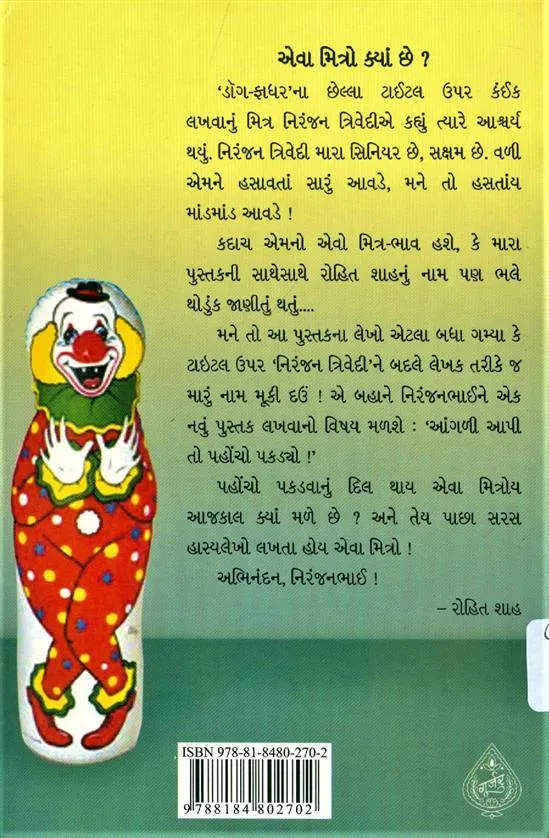 એવા મિત્રો ક્યાં છે ?
‘ડૉગ-ફાધર’ના છેલ્લા ટાઈટલ ઉપર કંઈક
લખવાનું મિત્ર નિરંજન ત્રિવેદીએ કહ્યું ત્યારે આશ્ચર્ય
થયું. નિરંજન ત્રિવેદી મારા સિનિયર છે, સક્ષમ છે. વળી
એમને હસાવતાં સારું આવડે, મને તો હસતાંય
માંડમાંડ આવડે !
કદાચ એમનો એવો મિત્ર-ભાવ હશે, કે મારા
પુસ્તકની સાથેસાથે રોહિત શાહનું નામ પણ ભલે
થોડુંક જાણીતું થતું....
મને તો આ પુસ્તકના લેખો એટલા બધા ગમ્યા કે
ટાઇટલ ઉપર ‘નિરંજન ત્રિવેદી’ને બદલે લેખક તરીકે જ
મારું નામ મૂકી દઉં ! એ બહાને નિરંજનભાઈને એક
નવું પુસ્તક લખવાનો વિષય મળશે : ‘આંગળી આપી
તો પહોંચો પકડ્યો !’
પહોંચો પકડવાનું દિલ થાય એવા મિત્રોય
આજકાલ ક્યાં મળે છે ? અને તેય પાછા સરસ
હાસ્યલેખો લખતા હોય એવા મિત્રો !
અભિનંદન, નિરંજનભાઈ !
– રોહિત શાહ
ISBN 978-81-8480-270-2
9788184802702
गूर्जर